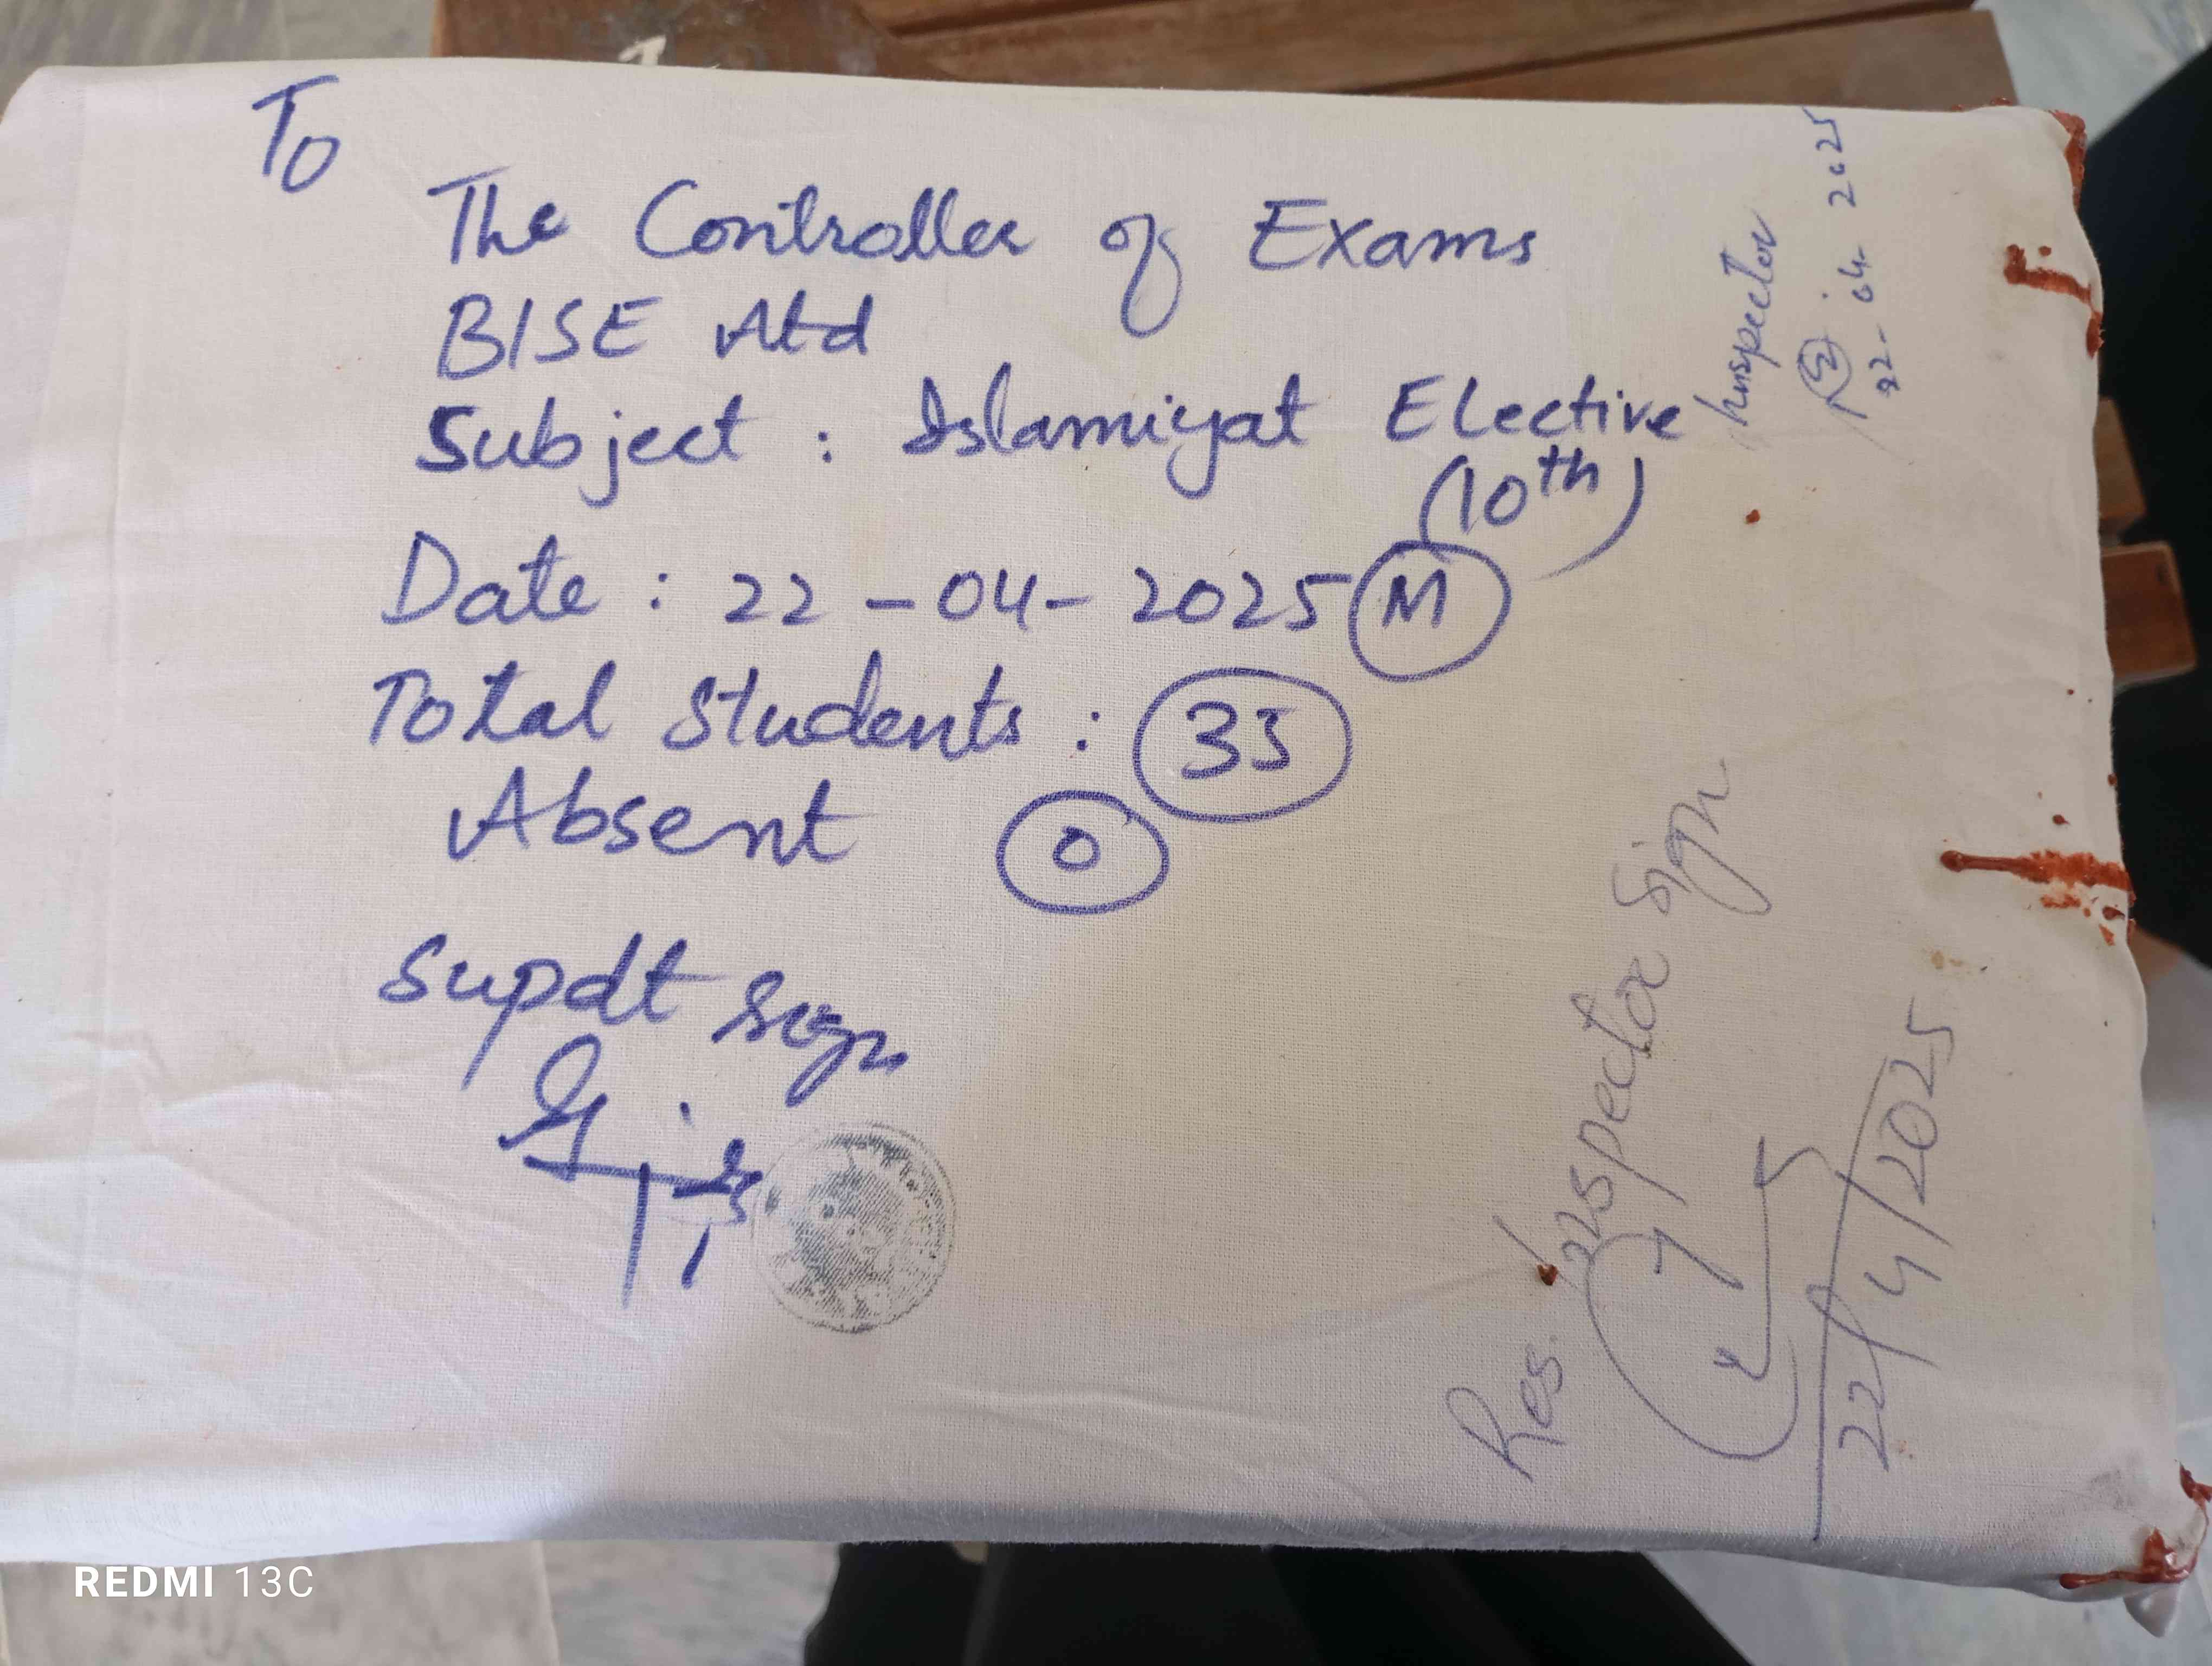 To
The Controller of Exams
BISE Atd
Subject : Islamiyat Elective
(10th)
Date : 22-04-2025 M
Total Students : 35
Absent 0
Supdt Sign
Inspector
22-04-2025
Res. Inspector Sign
22/4/2025
REDMI 13C